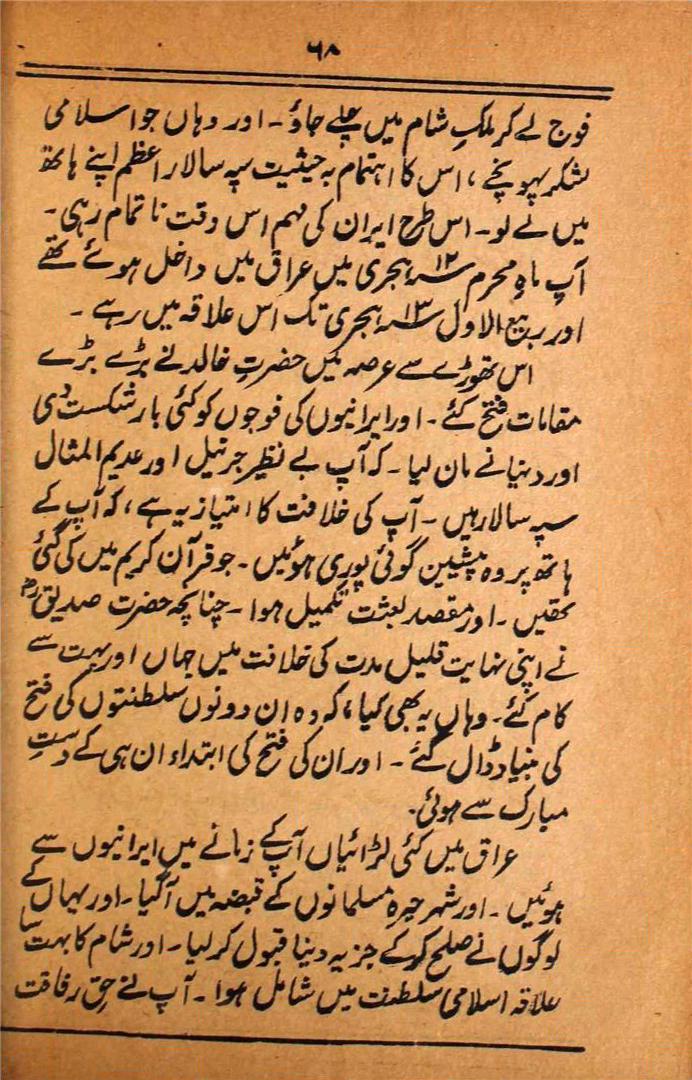 ۶۸
فوج لے کر ملکِ شام میں چلے جاؤ۔ اور وہاں جو اسلامی
لشکر پہونچے، اس کا اہتمام بہ حیثیت سپہ سالار اعظم اپنے ہاتھ
میں لے لو۔ اس طرح ایران کی مہم اس وقت ناتمام رہی۔
آپ ماہِ محرم ۱۲؁ ہجری میں عراق میں داخل ہوئے تھے
اور ربیع الاول ۱۳؁ ہجری تک اس علاقہ میں رہے۔
اس تھوڑے سے عرصہ میں حضرتِ خالد نے بڑے بڑے
مقامات فتح کئے۔ اور ایرانیوں کی فوجوں کو کئی بار شکست دی
اور دنیا نے مان لیا۔ کہ آپ بے نظیر جرنیل اور عدیم المثال
سپہ سالار ہیں۔ آپ کی خلافت کا امتیاز یہ ہے، کہ آپ کے
ہاتھ پر وہ پیشین گوئی پوری ہوئیں۔ جو قرآن کریم میں کی گئی
تھیں۔ اور مقصد بعثت تکمیل ہوا۔ چنانچہ حضرت صدیقؓ
نے اپنی نہایت قلیل مدت کی خلافت میں جہاں اور بہت سے
کام کئے۔ وہاں یہ بھی کیا، کہ وہ ان دونوں سلطنتوں کی فتح
کی بنیاد ڈال گئے۔ اور ان کی فتح کی ابتداء ان ہی کے دستِ
مبارک سے ہوئی۔
عراق میں کئی لڑائیاں آپ کے زمانے میں ایرانیوں سے
ہوئیں۔ اور شہر حیرہ مسلمانوں کے قبضہ میں آگیا۔ اور یہاں کے
لوگوں نے صلح کر کے جزیہ دینا قبول کر لیا۔ اور شام کا بہت سا
علاقہ اسلامی سلطنت میں شامل ہوا۔ آپ نے حق رفاقت